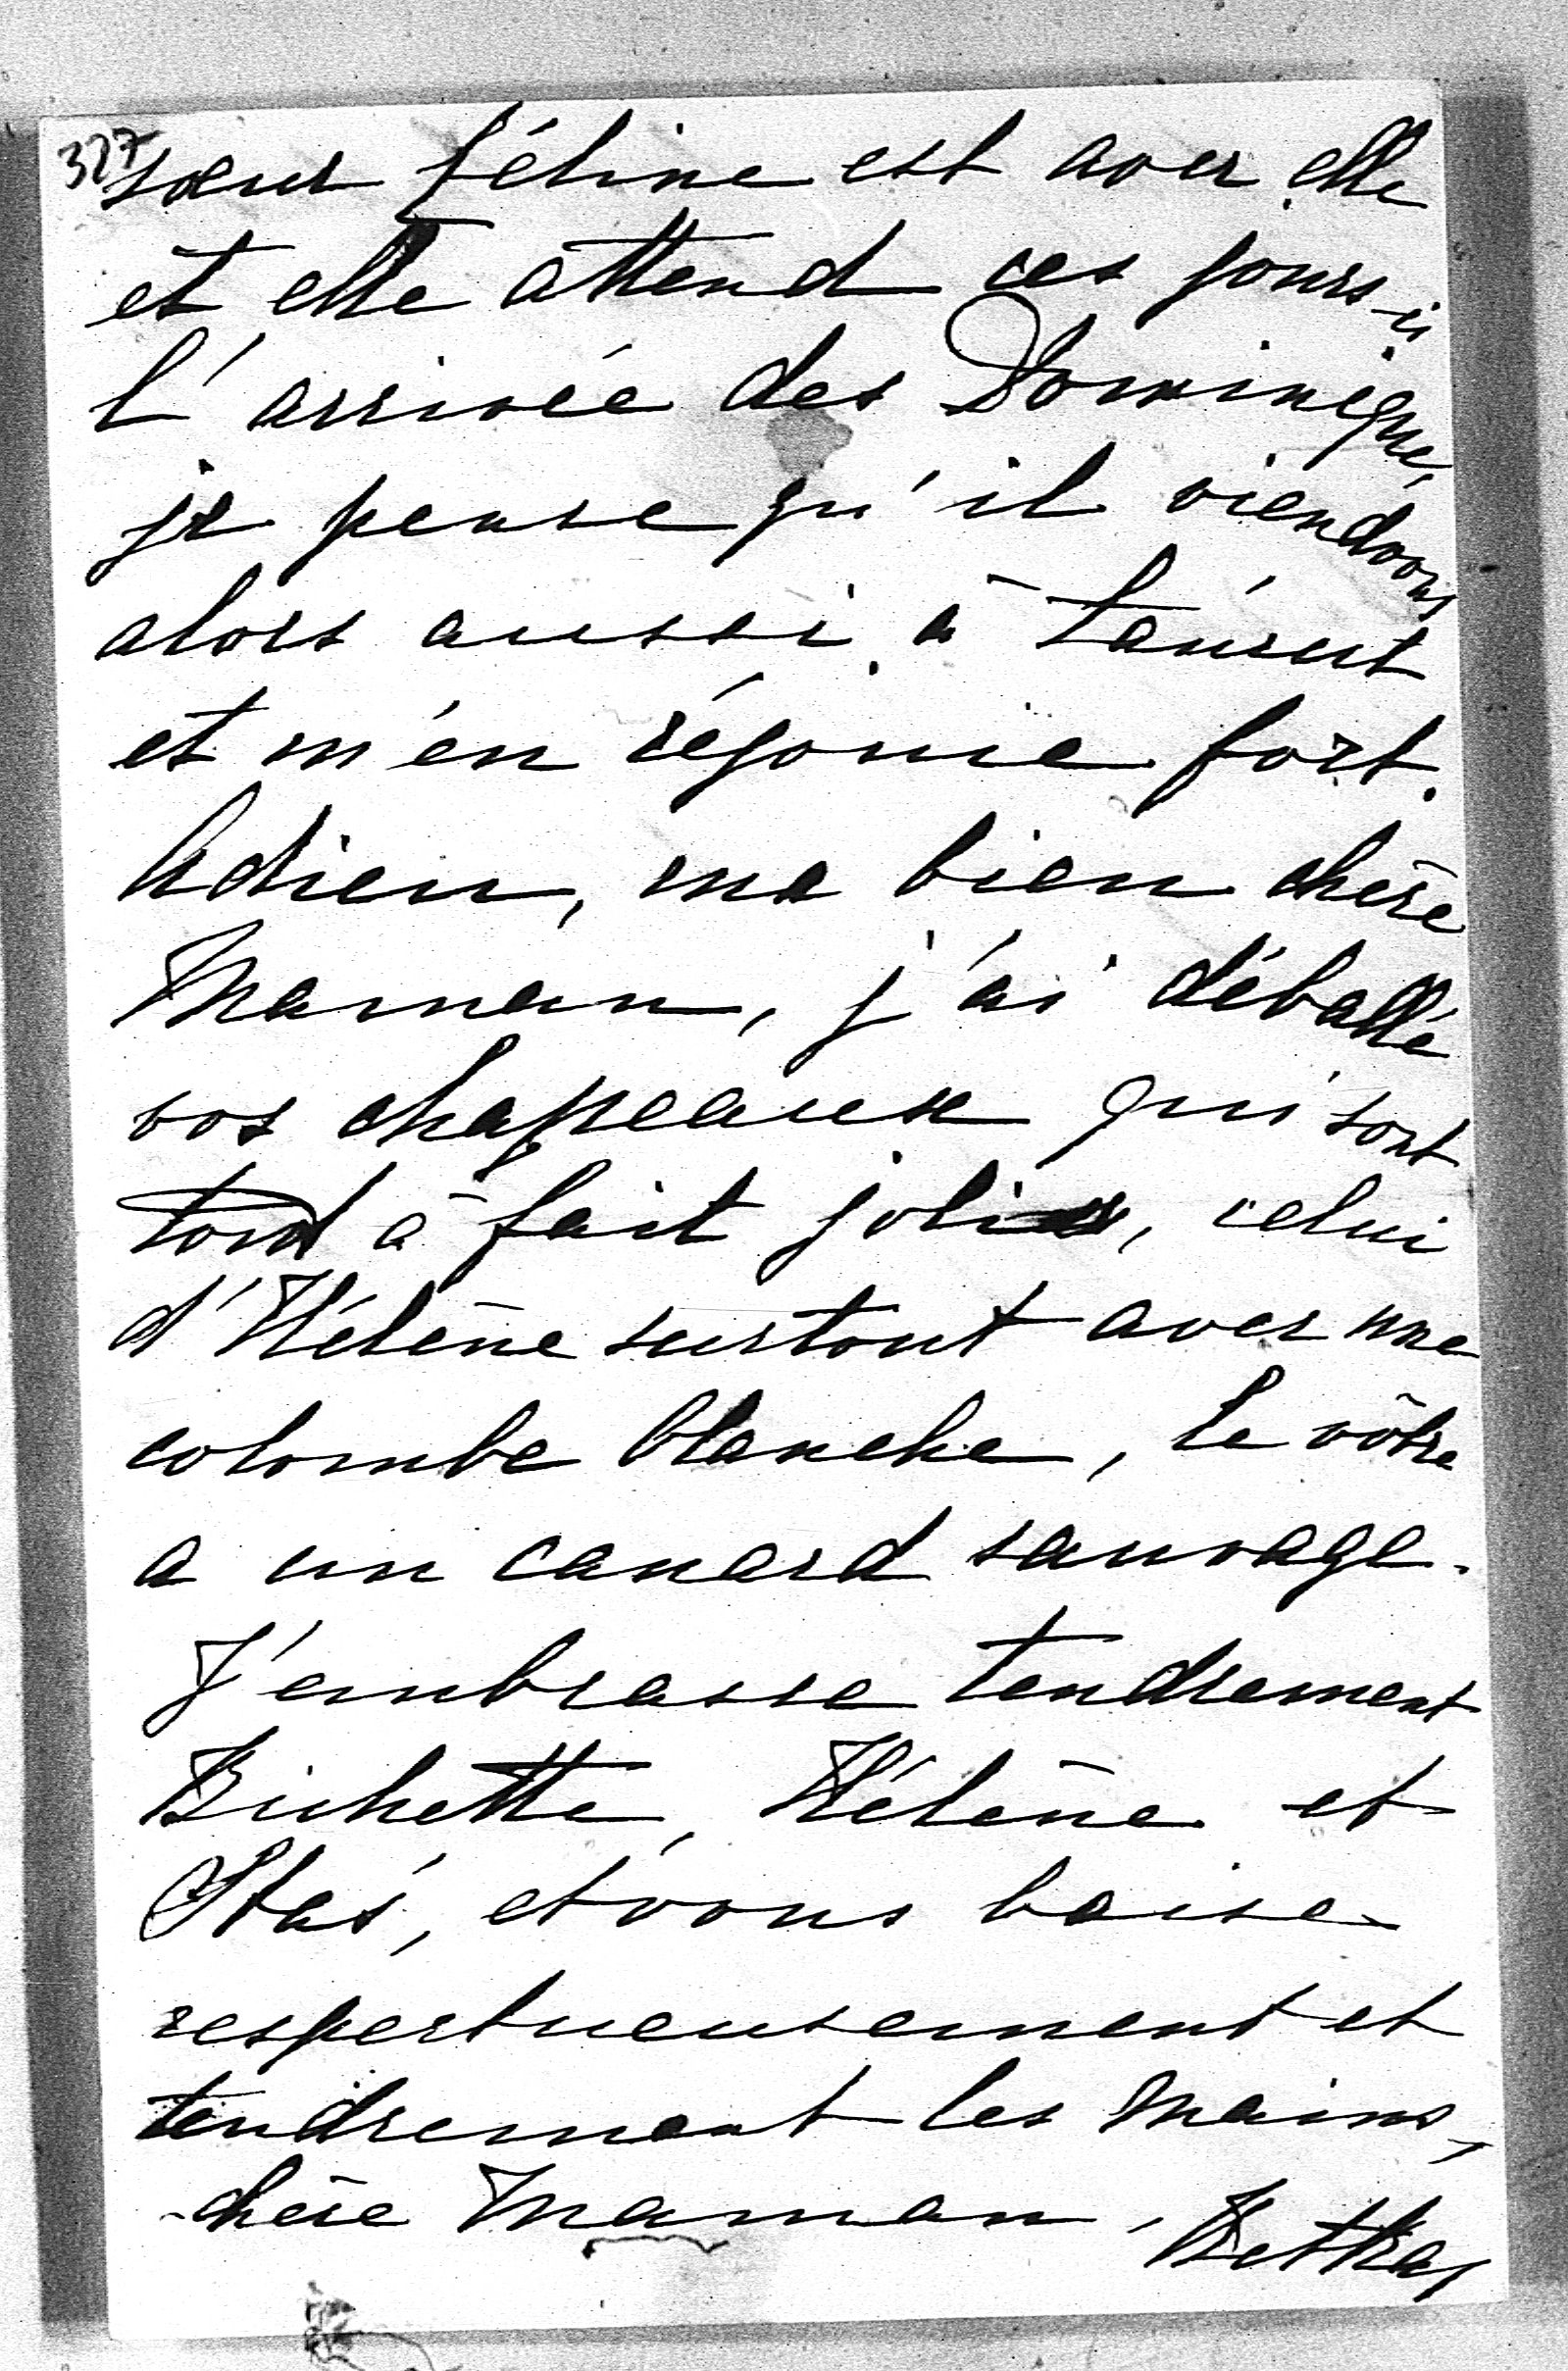 327
sœur Féline est avec elle
et elle attend ces jours-ci
l'arrivée des Dominique,
je pense qu'il viendrons
alors aussi à Lancut
et m'en réjouie fort.
Adieu, ma bien chère
Maman, j'ai déballé
vos chapeaux qui sont
tout à fait jolis, celui
d'Hélène surtout avec une
colombe blanche, le vôtre
a un canard sauvage.
J'embrasse tendrement
Bichette, Hélène et
Staś, et vous baise
respectueusement et
tendrement les mains,
chère Maman.